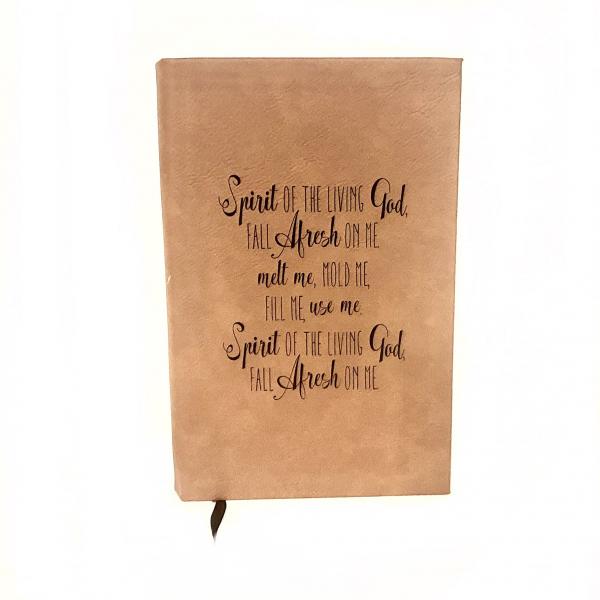 Spirit OF THE LIVING God,
FALL Afresh ON ME
melt me, MOLD ME,
FILL ME, use me.
Spirit OF THE LIVING God,
FALL Afresh ON ME